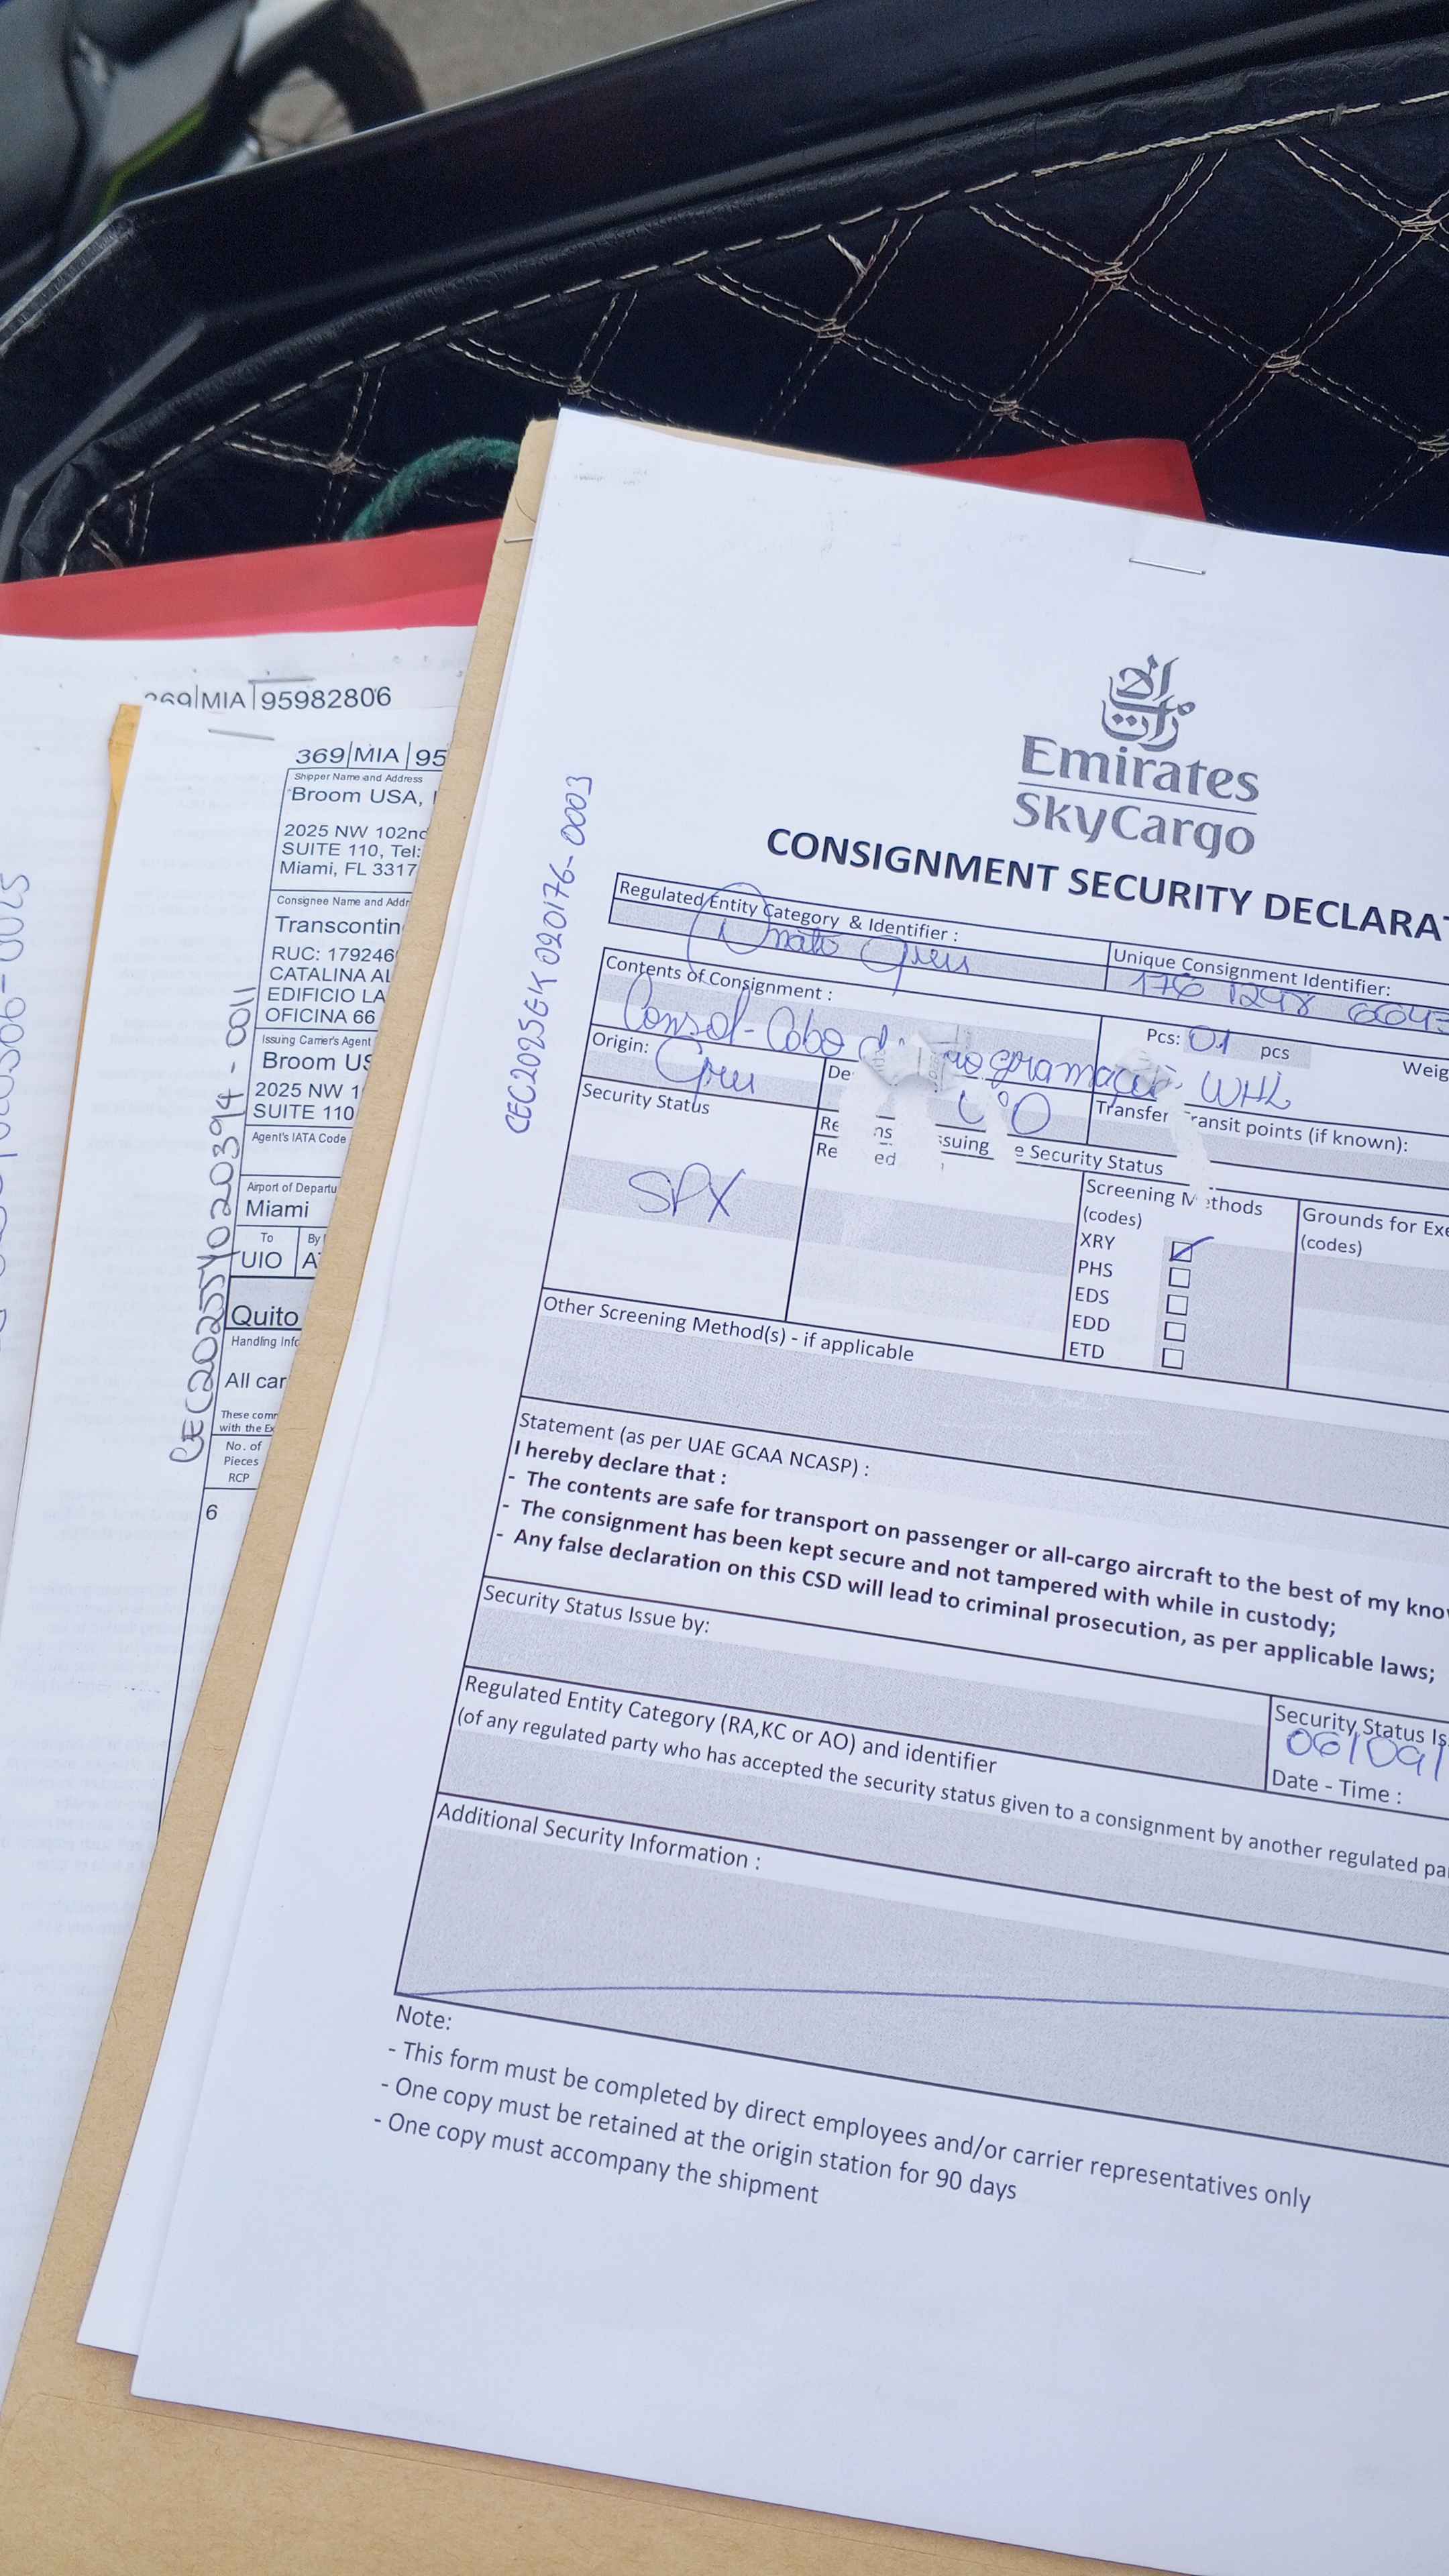 369|MIA|95982806
369|MIA|95
Shipper Name and Address
Broom USA,
2025 NW 102nd
SUITE 110, Tel:
Miami, FL 3317
Consignee Name and Addr
Transcontin
RUC: 179246
CATALINA AL
EDIFICIO LA
OFICINA 66
Issuing Carrier's Agent
Broom US
2025 NW 1
SUITE 110
Agent's IATA Code
Airport of Departu
Miami
To
By
UIO
A
Quito
Handling Info
All car
These comm
with the Ex
No. of
Pieces
RCP
6
CEC20255Y020394-0011
CEC2025EK020176-0003
Emirates
SkyCargo
CONSIGNMENT SECURITY DECLARAT
Regulated Entity Category & Identifier :
Unique Consignment Identifier:
176 1298 6643
Contents of Consignment :
Consol-Cabo
Pcs: 01 pcs
Weig
Origin: Gru
De
UIO
Transfer Transit points (if known):
Security Status
SPX
Re ns suing e Security Status
Re ed
Screening Methods
(codes)
XRY
PHS
EDS
EDD
ETD
Grounds for Exe
(codes)
Other Screening Method(s) - if applicable
Statement (as per UAE GCAA NCASP) :
I hereby declare that :
- The contents are safe for transport on passenger or all-cargo aircraft to the best of my kno
- The consignment has been kept secure and not tampered with while in custody;
- Any false declaration on this CSD will lead to criminal prosecution, as per applicable laws;
Security Status Issue by:
Security Status Is
06/09/
Date - Time :
Regulated Entity Category (RA,KC or AO) and identifier
(of any regulated party who has accepted the security status given to a consignment by another regulated pa
Additional Security Information :
Note:
- This form must be completed by direct employees and/or carrier representatives only
- One copy must be retained at the origin station for 90 days
- One copy must accompany the shipment